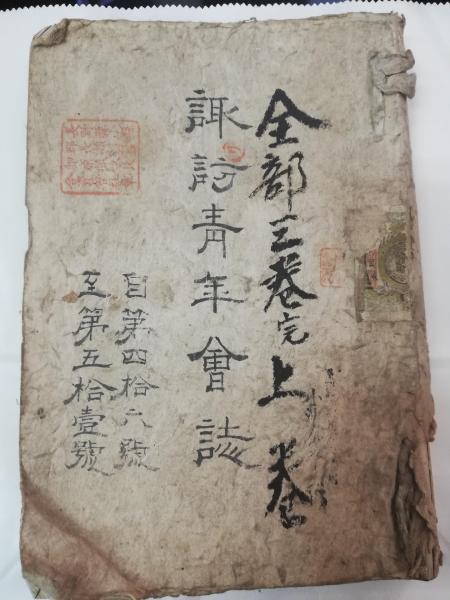 全部三卷完上卷
諏訪青年會誌
自第四拾六號
至第五拾壹號